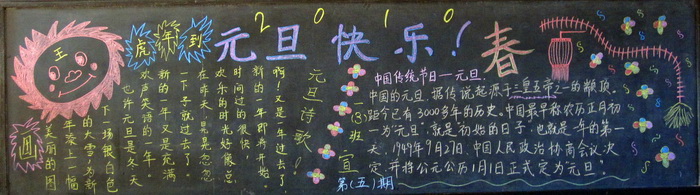 2010
王
虎年到
元旦快乐!
春
元旦诗歌
啊!又是一年过去了,
新的一年即将开始,
时间过的很快,
欢乐的时光好像总
在昨天,晃晃忽忽
一下子就过去了。
新的一年又是充满
欢声笑语的一年
也许元旦是冬天
下一场银白色
的大雪,为新
年添上一幅
美丽的图
画
中国传统节日—元旦.
中国的元旦,据传说起源于三皇五帝之一的颛顼,
距今已有3000多年的历史。中国最早称农历正月初
一为“元旦”,就是初始的日子,也就是一年的第一
天。1949年9月27日,中国人民政治协商会议决
定,并将公元公历1月1日正式定为元旦。
一(3)班 宣
第(五)期